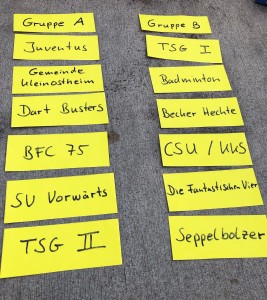 Gruppe A
Juventus
Gemeinde
Kleinostheim
Dart Busters
BFC 75
SV Vorwärts
TSG II
Gruppe B
TSG I
Badminton
Becher Hechte
CSU / KKS
Die Fantastischen Vier
Seppelbolzer